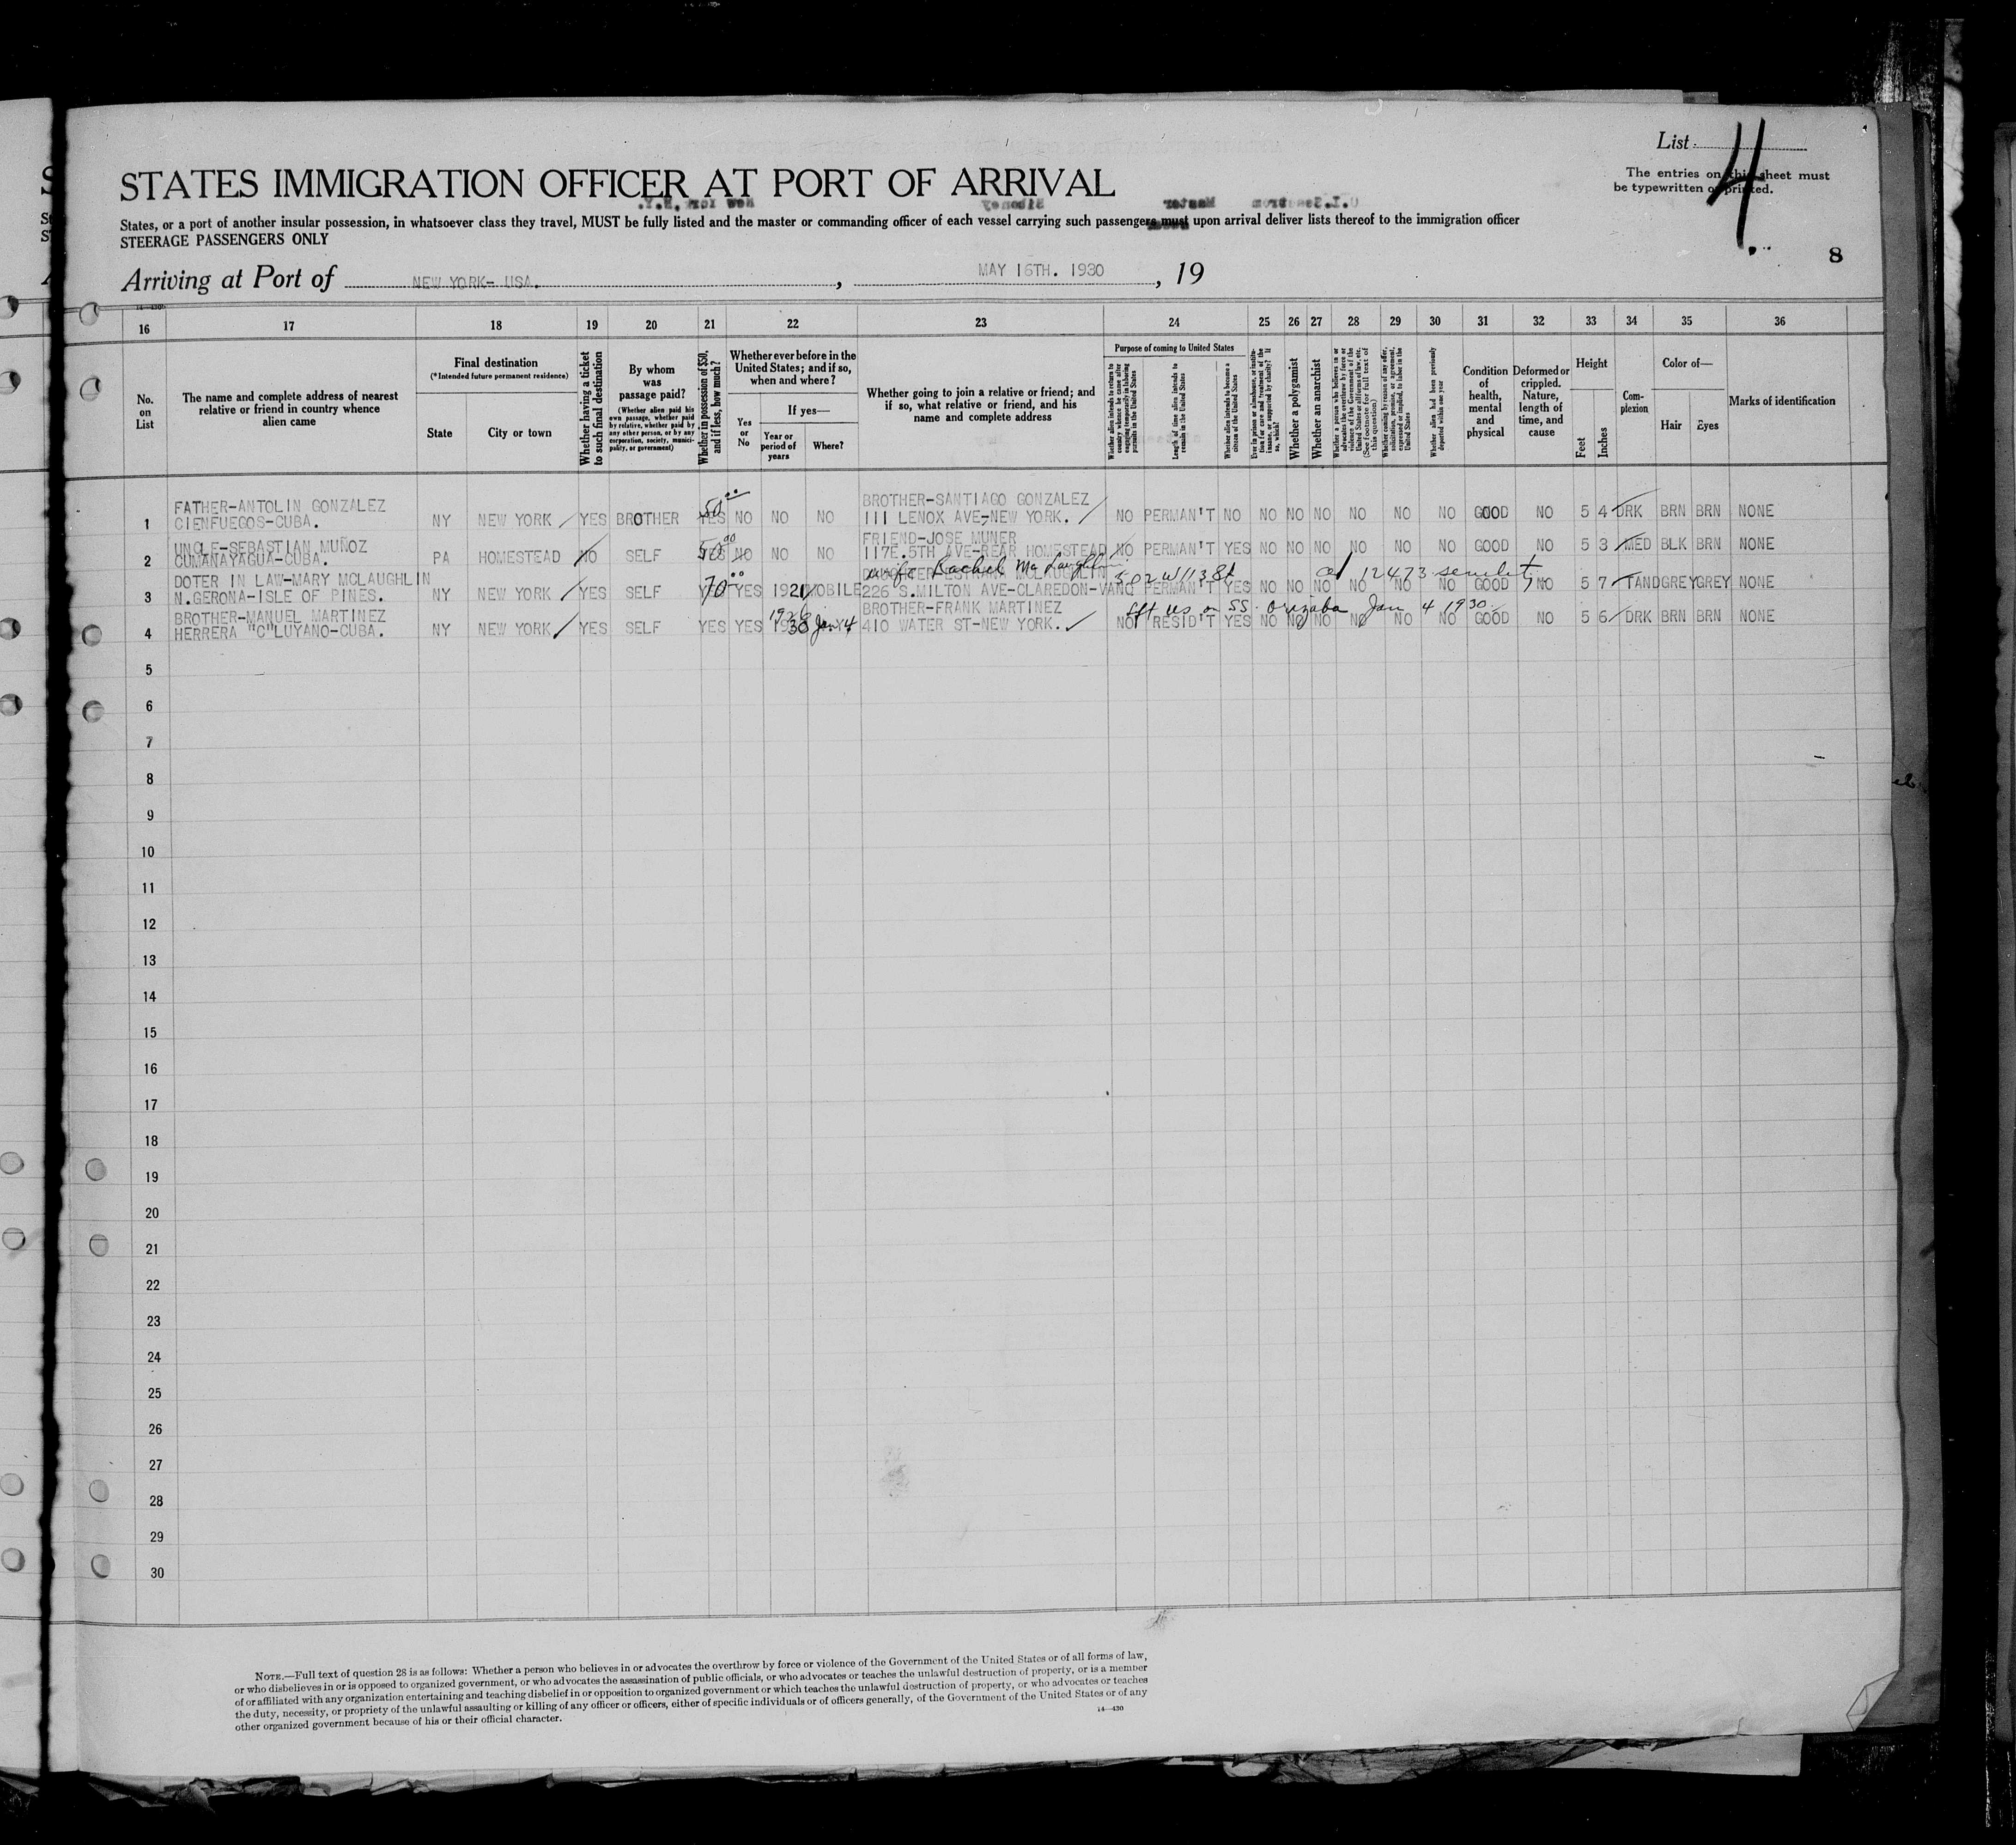 List 4.
The entries on this sheet must
be typewritten or printed.
STATES IMMIGRATION OFFICER AT PORT OF ARRIVAL
New York, N.Y. Siboney Master
States, or a port of another insular possession, in whatsoever class they travel, MUST be fully listed and the master or commanding officer of each vessel carrying such passengers must upon arrival deliver lists thereof to the immigration officer
STEERAGE PASSENGERS ONLY
8
Arriving at Port of NEW YORK- USA. , MAY 16TH. 1930 , 19
14—430
16 17 18 19 20 21 22 23 24 25 26 27 28 29 30 31 32 33 34 35 36
No. on List
The name and complete address of nearest relative or friend in country whence alien came
Final destination
(*Intended future permanent residence)
State
City or town
Whether having a ticket to such final destination
By whom was passage paid?
(Whether alien paid his own passage, whether paid by relative, whether paid by any other person, or by any corporation, society, municipality, or government)
Whether in possession of $50, and if less, how much?
Whether ever before in the United States; and if so, when and where?
Yes or No
If yes—
Year or period of years
Where?
Whether going to join a relative or friend; and if so, what relative or friend, and his name and complete address
Purpose of coming to United States
Whether alien intends to return to country whence he came after engaging temporarily in laboring pursuits in the United States
Length of time alien intends to remain in the United States
Whether alien intends to become a citizen of the United States
Ever in prison or almshouse, or institution for care and treatment of the insane, or supported by charity? If so, which?
Whether a polygamist
Whether an anarchist
Whether a person who believes in or advocates the overthrow by force or violence of the Government of the United States or all forms of law, etc. (See footnote for full text of this question)
Whether coming by reason of any offer, solicitation, promise, or agreement, expressed or implied, to labor in the United States
Whether alien had been previously deported within one year
Condition of health, mental and physical
Deformed or crippled. Nature, length of time, and cause
Height
Feet
Inches
Complexion
Color of—
Hair
Eyes
Marks of identification
FATHER-ANTOLIN GONZALEZ 50.00 BROTHER-SANTIAGO GONZALEZ
1 CIENFUEGOS-CUBA. NY NEW YORK YES BROTHER YES NO NO NO 111 LENOX AVE-NEW YORK. NO PERMAN'T NO NO NO NO NO NO NO GOOD NO 5 4 DRK BRN BRN NONE
UNCLE-SEBASTIAN MUÑOZ 50.00 FRIEND-JOSE MUNER
2 CUMANAYAGUA-CUBA. PA HOMESTEAD NO SELF YES NO NO NO 117E.5TH AVE-REAR HOMESTEAD NO PERMAN'T YES NO NO NO NO NO NO GOOD NO 5 3 MED BLK BRN NONE
wife Rachel McLaughlin 502 W 113 St 12473
DOTER IN LAW-MARY MCLAUGHLIN 70.00
3 N.GERONA-ISLE OF PINES. NY NEW YORK YES SELF YES YES 1921 MOBILE 226 S.MILTON AVE-CLAREDON-VA NO PERMAN'T YES NO NO NO NO NO NO GOOD NO 5 7 TAND GREY GREY NONE
BROTHER-MANUEL MARTINEZ 1926 BROTHER-FRANK MARTINEZ lft US on SS. Orizaba Jan 4 1930
4 HERRERA "C"LUYANO-CUBA. NY NEW YORK YES SELF YES YES 1930 Jan 4 410 WATER ST-NEW YORK. NO RESID'T YES NO NO NO NO NO NO GOOD NO 5 6 DRK BRN BRN NONE
5
6
7
8
9
10
11
12
13
14
15
16
17
18
19
20
21
22
23
24
25
26
27
28
29
30
NOTE.—Full text of question 28 is as follows: Whether a person who believes in or advocates the overthrow by force or violence of the Government of the United States or of all forms of law,
or who disbelieves in or is opposed to organized government, or who advocates the assassination of public officials, or who advocates or teaches the unlawful destruction of property, or is a member
of or affiliated with any organization entertaining and teaching disbelief in or opposition to organized government or which teaches the unlawful destruction of property, or who advocates or teaches
the duty, necessity, or propriety of the unlawful assaulting or killing of any officer or officers, either of specific individuals or of officers generally, of the Government of the United States or of any
other organized government because of his or their official character.
14—430